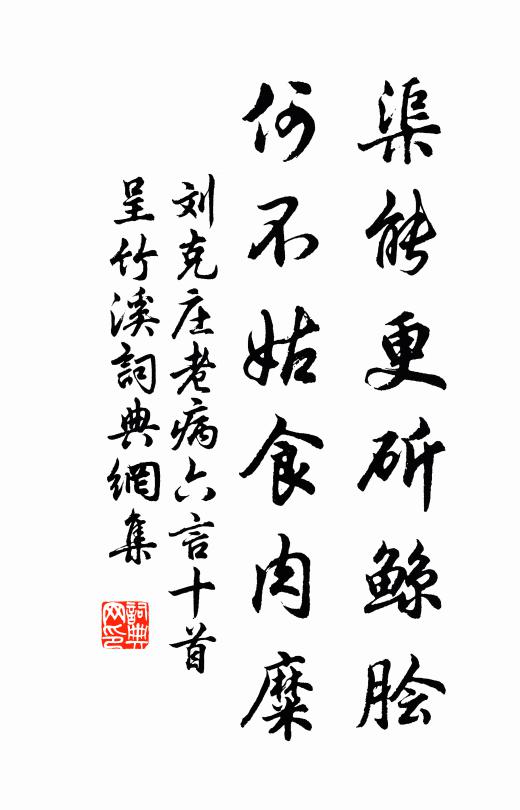 渠能更斫鲸脍
何不姑食肉糜
刘克庄老病六言十首
呈竹溪詞典網集
詞典网印